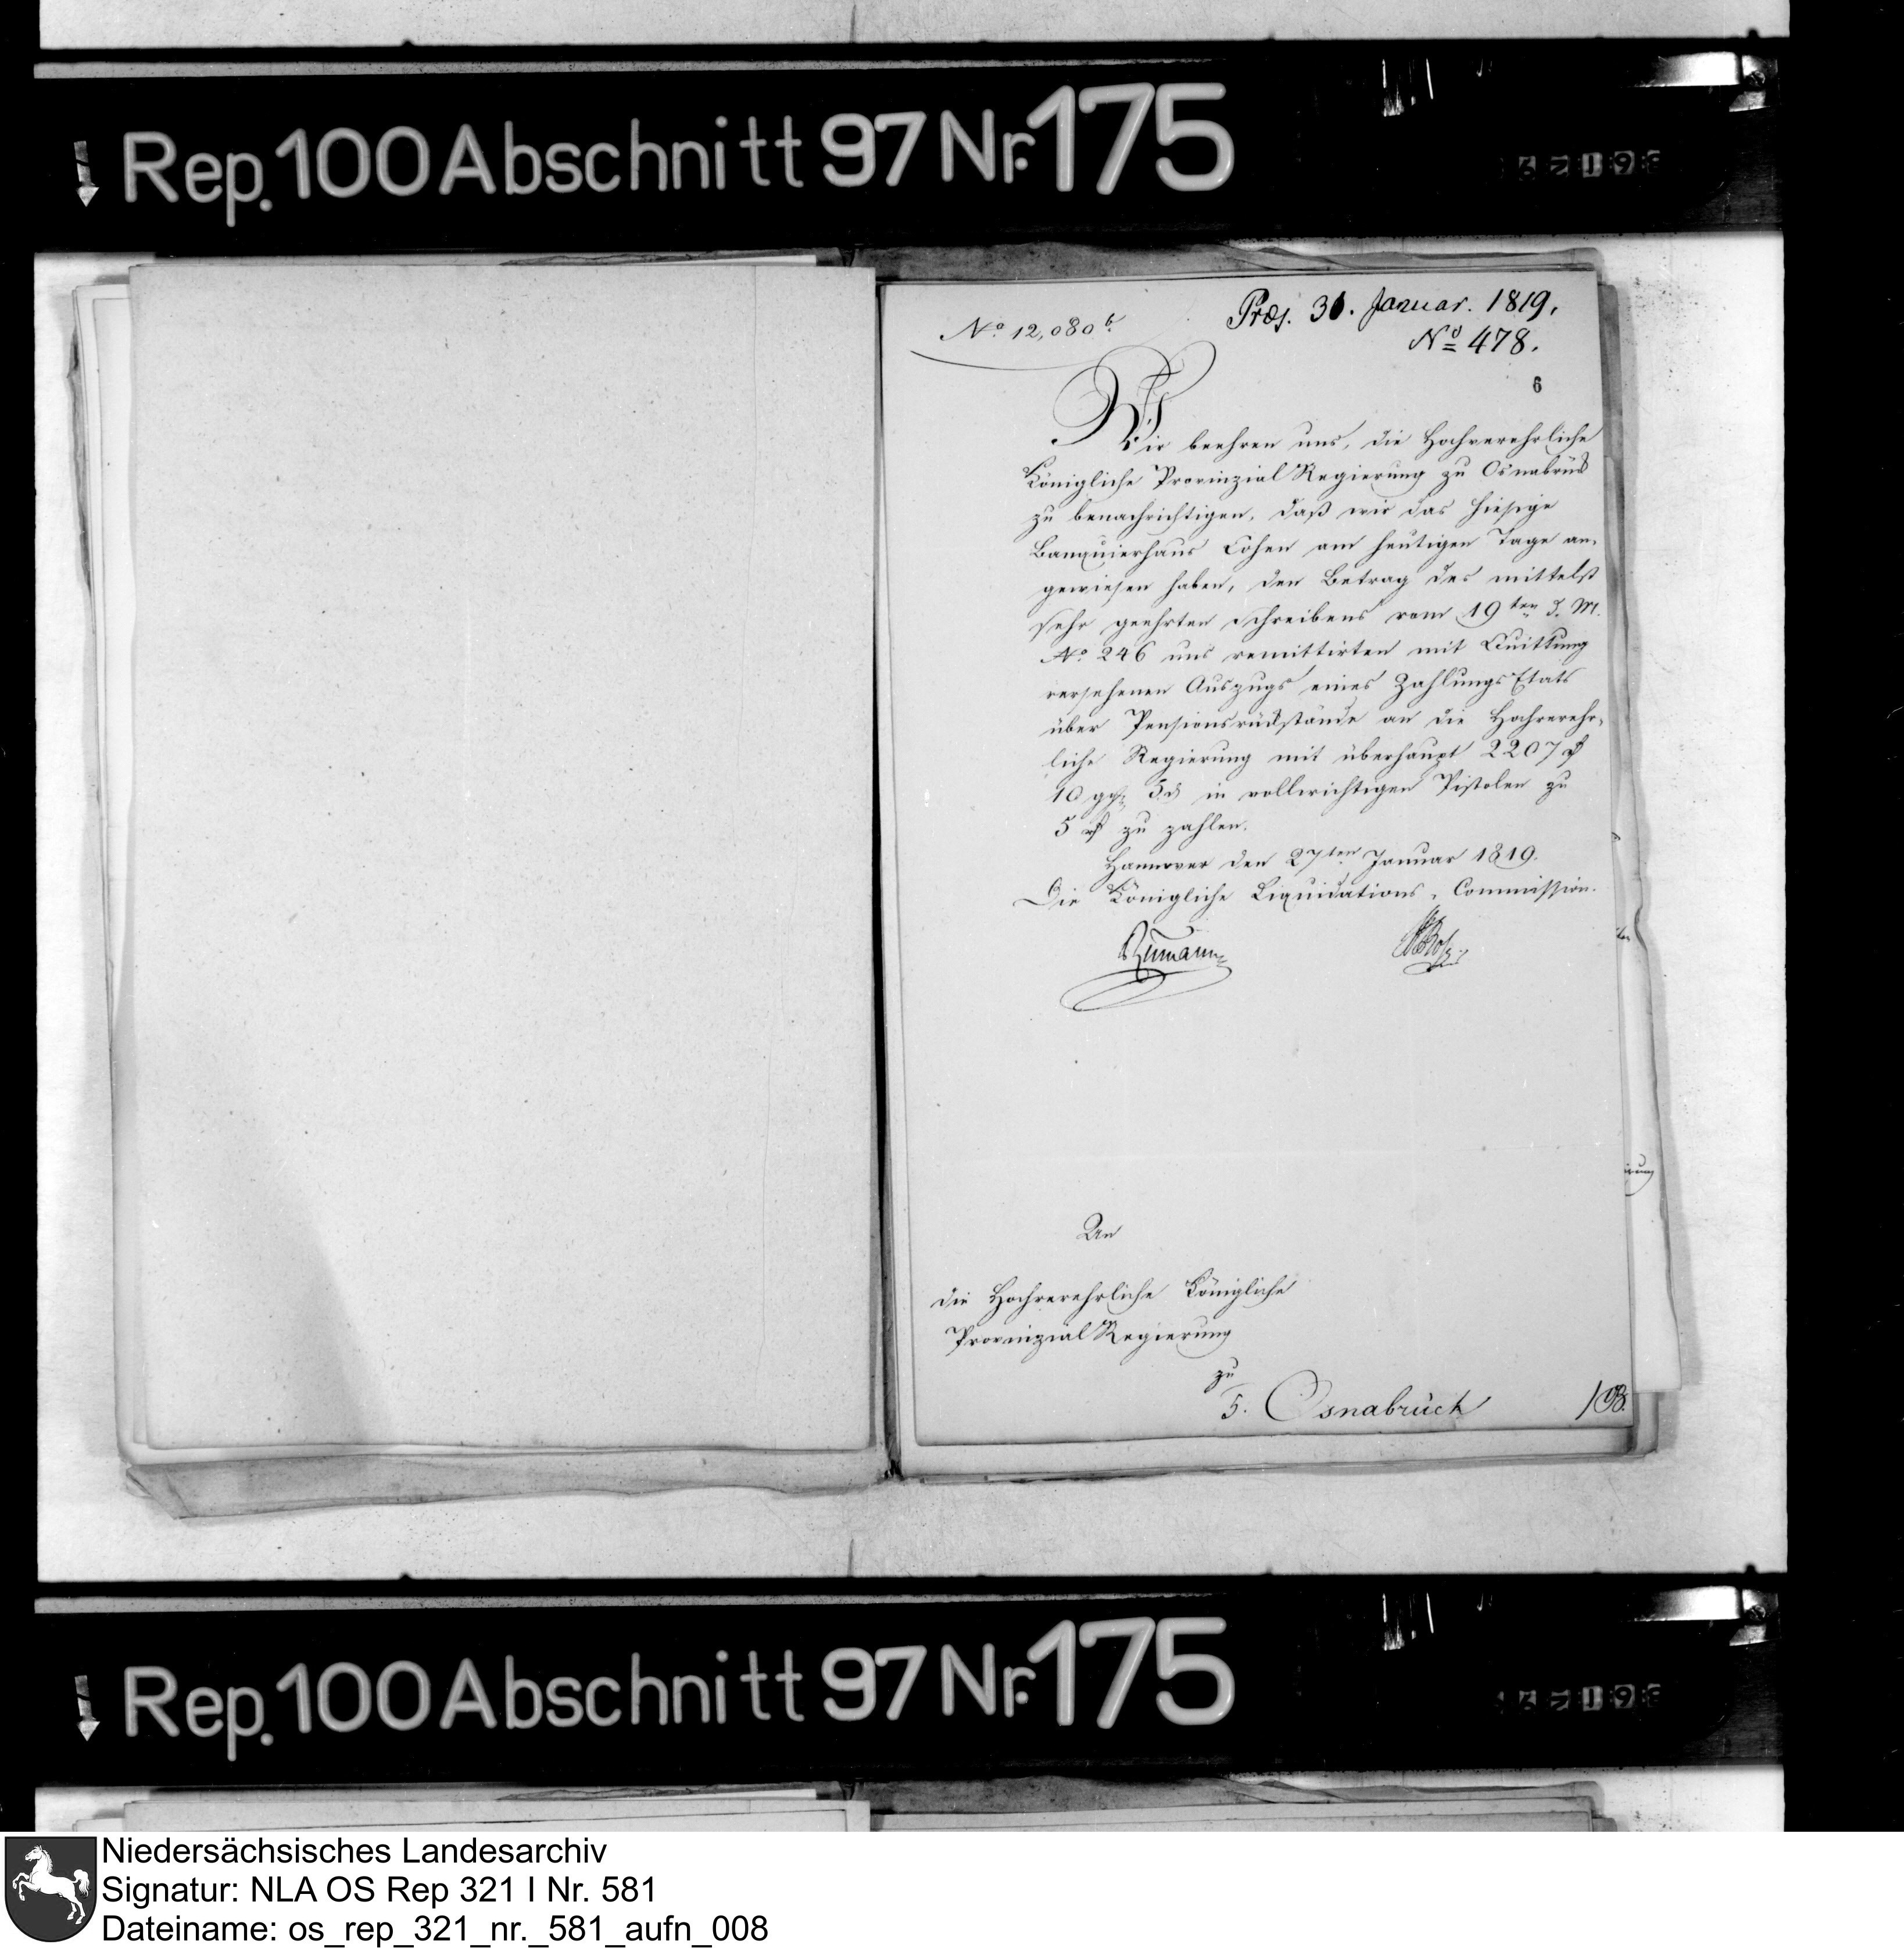 Rep. 100 Abschnitt 97 Nr. 175
No. 12,080 b.
Præs. 30. Januar. 1819.
No 478.
6
Wir beehren uns, die Hochverehrliche
Königliche Provinzial Regierung zu Osnabrück
zu benachrichtigen, daß wir das hiesige
Banquierhaus Cohen am heutigen Tage an-
gewiesen haben, den Betrag des mittelst
sehr geehrten Schreibens vom 19ten d. M.
No. 246 uns remittirten mit Quittung
versehenen Auszugs eines Zahlungs Etats
über Pensionsrückstände an die Hochverehr-
liche Regierung mit überhaupt 2207 rℓ
10 ggr 5 d in vollwichtigen Pistolen zu
5 rℓ zu zahlen.
Hannover den 27ten Januar 1819.
Die Königliche Liquidations-Commission.
An
die Hochverehrliche Königliche
Provinzial Regierung
zu
5. Osnabrück
Rep. 100 Abschnitt 97 Nr. 175
Niedersächsisches Landesarchiv
Signatur: NLA OS Rep 321 I Nr. 581
Dateiname: os_rep_321_nr._581_aufn_008